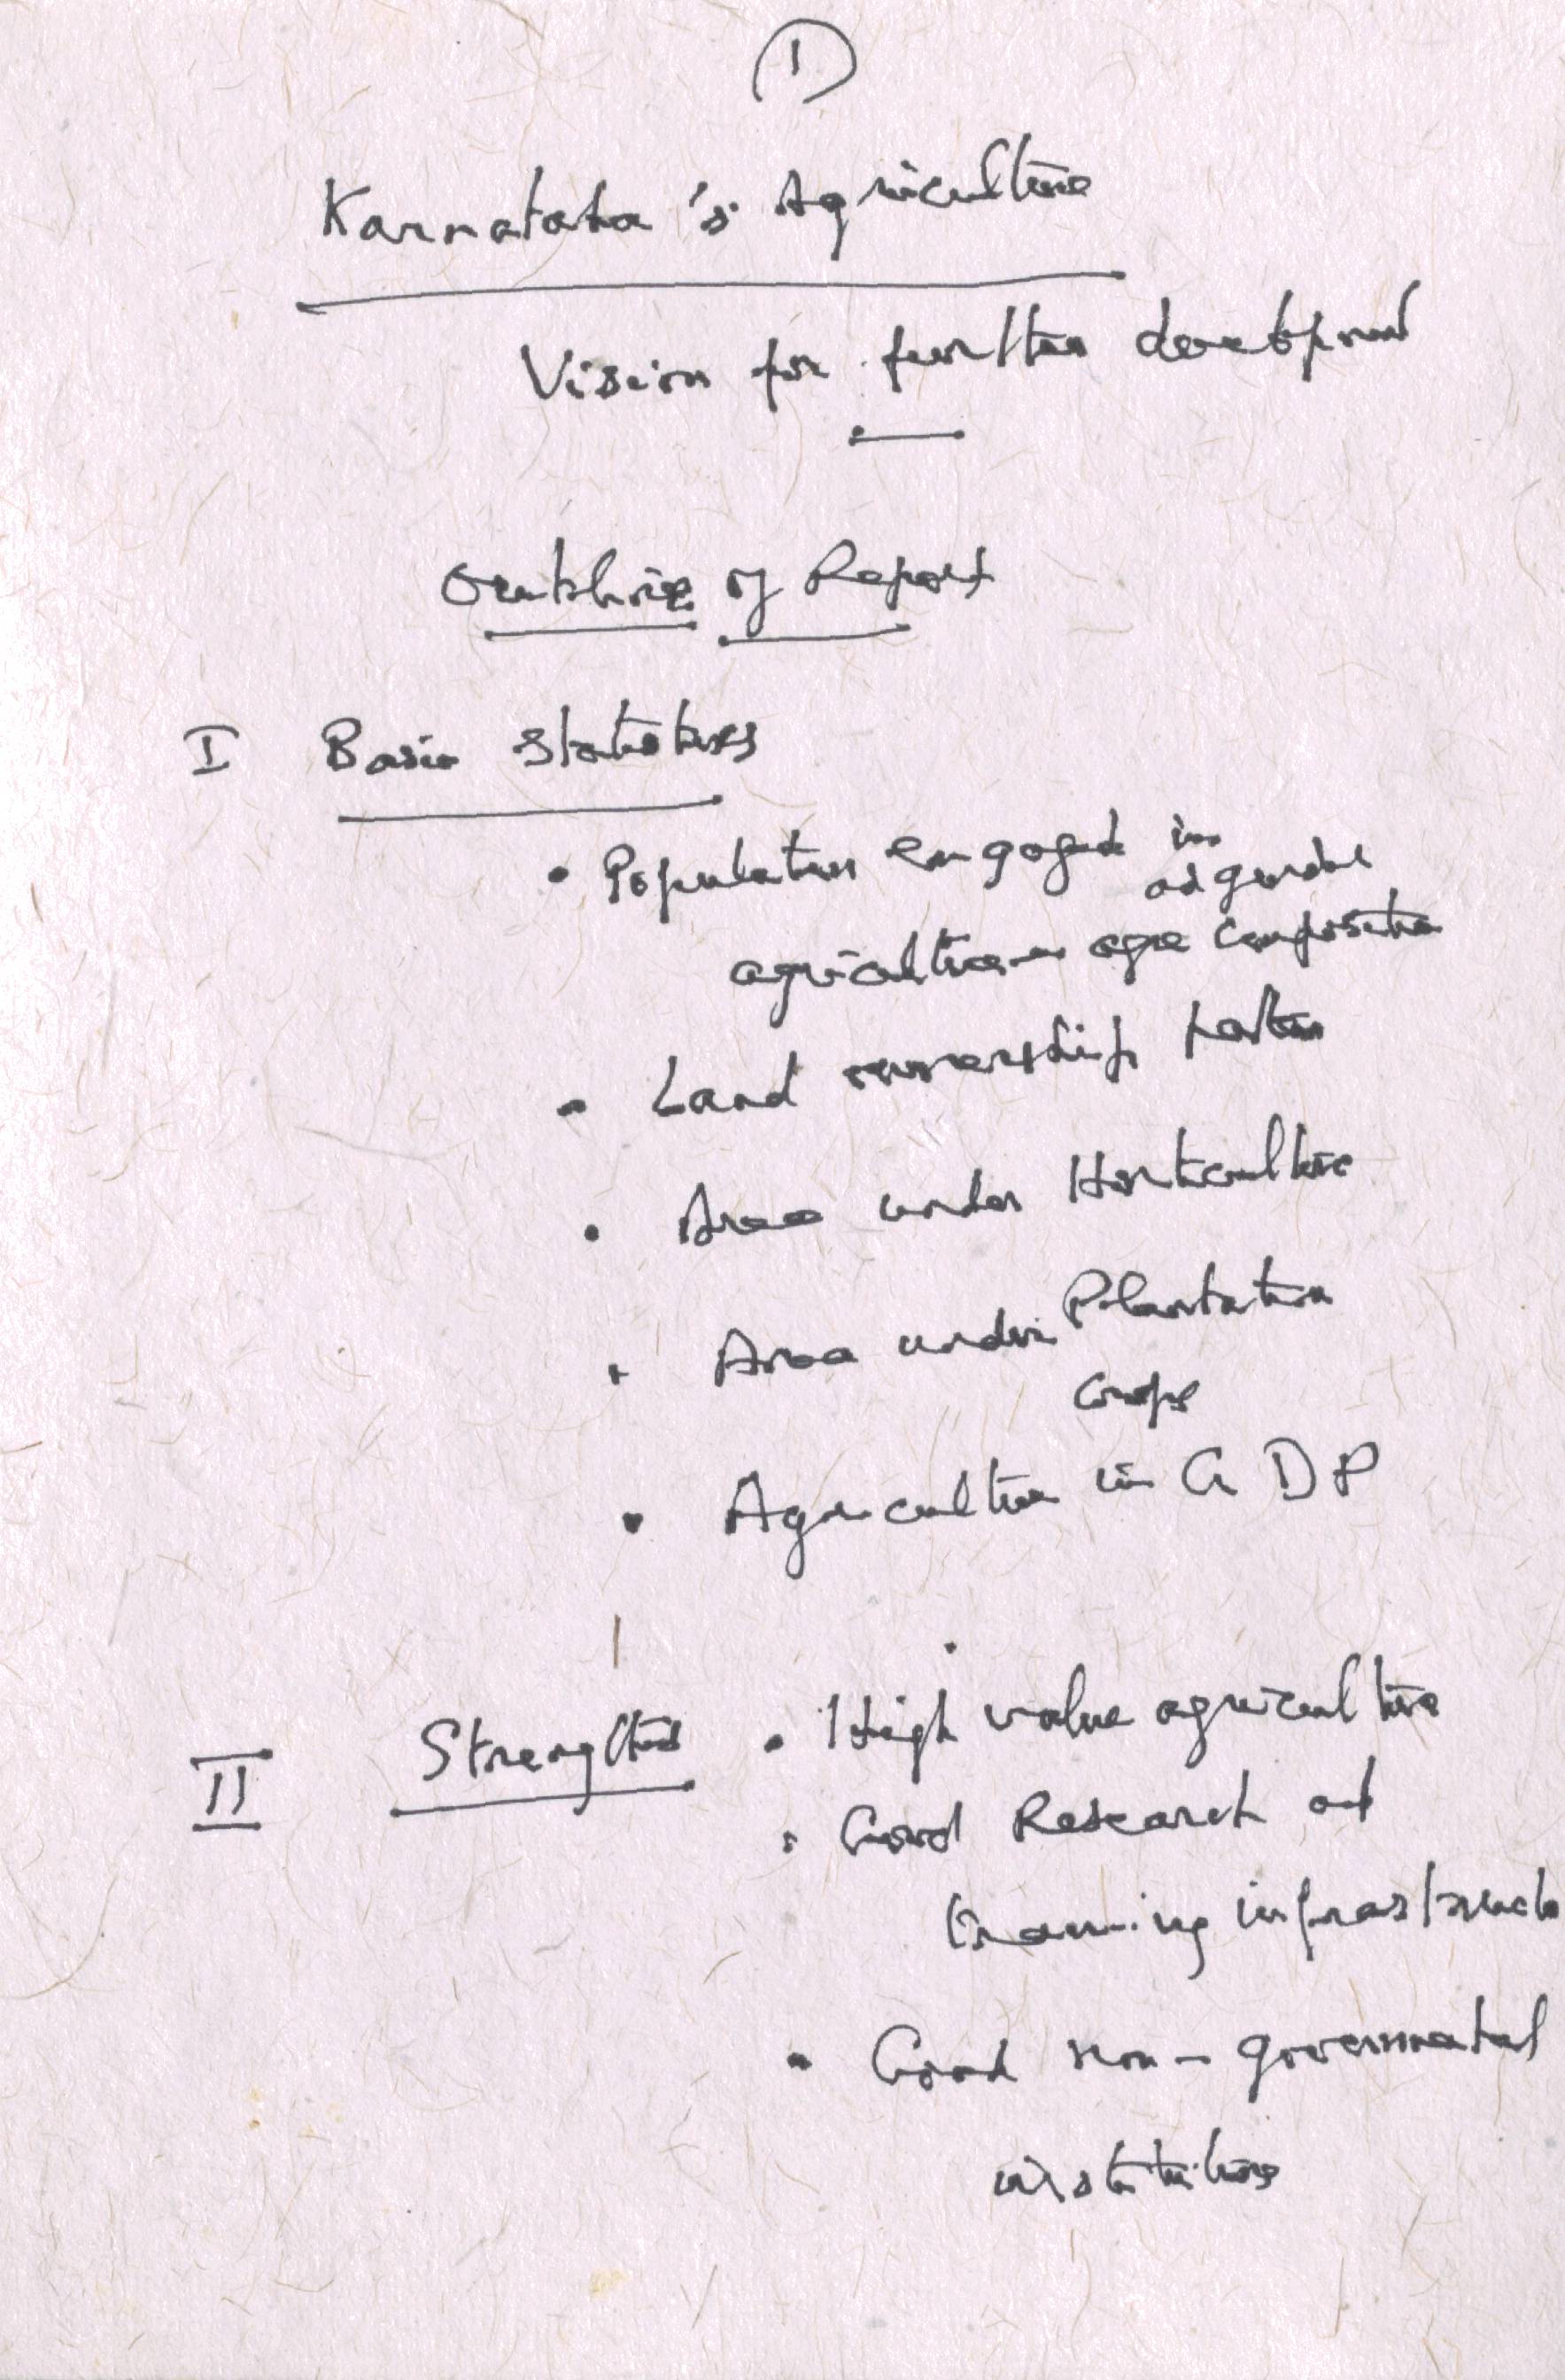 1
Karnataka's Agriculture
Vision for further development
Outline of Report
I Basic Statistics
• Population engaged in
and gender
agriculture – age composition
• Land ownership pattern
• Area under Horticulture
• Area under Plantation
Crops
• Agriculture in GDP
II Strengths • High value agriculture
• Good Research and
training infrastructure
• Good non-governmental
institutions